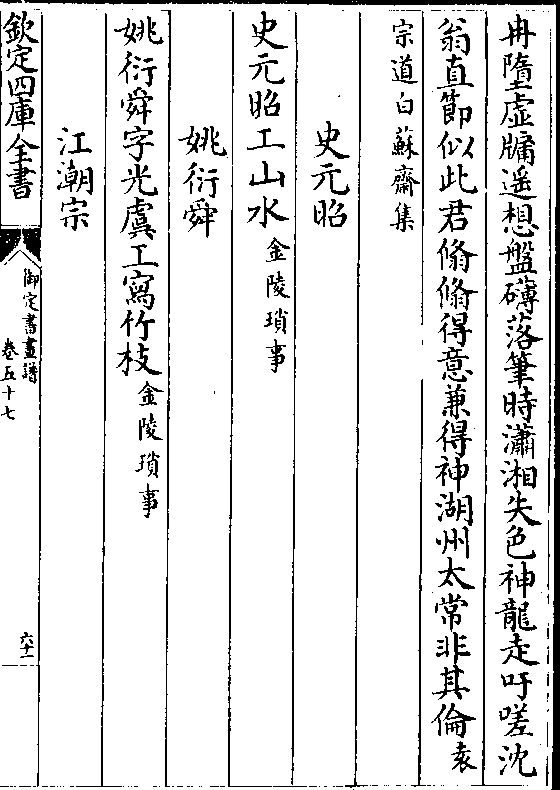 冉墮虚牖遥想盤礴落筆時瀟湘失色神龍走吁嗟沈
翁直節似此君翛翛得意兼得神湖州太常非其倫袁
宗道白蘇齋集
史元昭
史元昭工山水金陵瑣事
姚衍舜
姚衍舜字光虞工寫竹枝金陵瑣事
江潮宗
欽定四庫全書
御定書畫譜
卷五十七
六十一